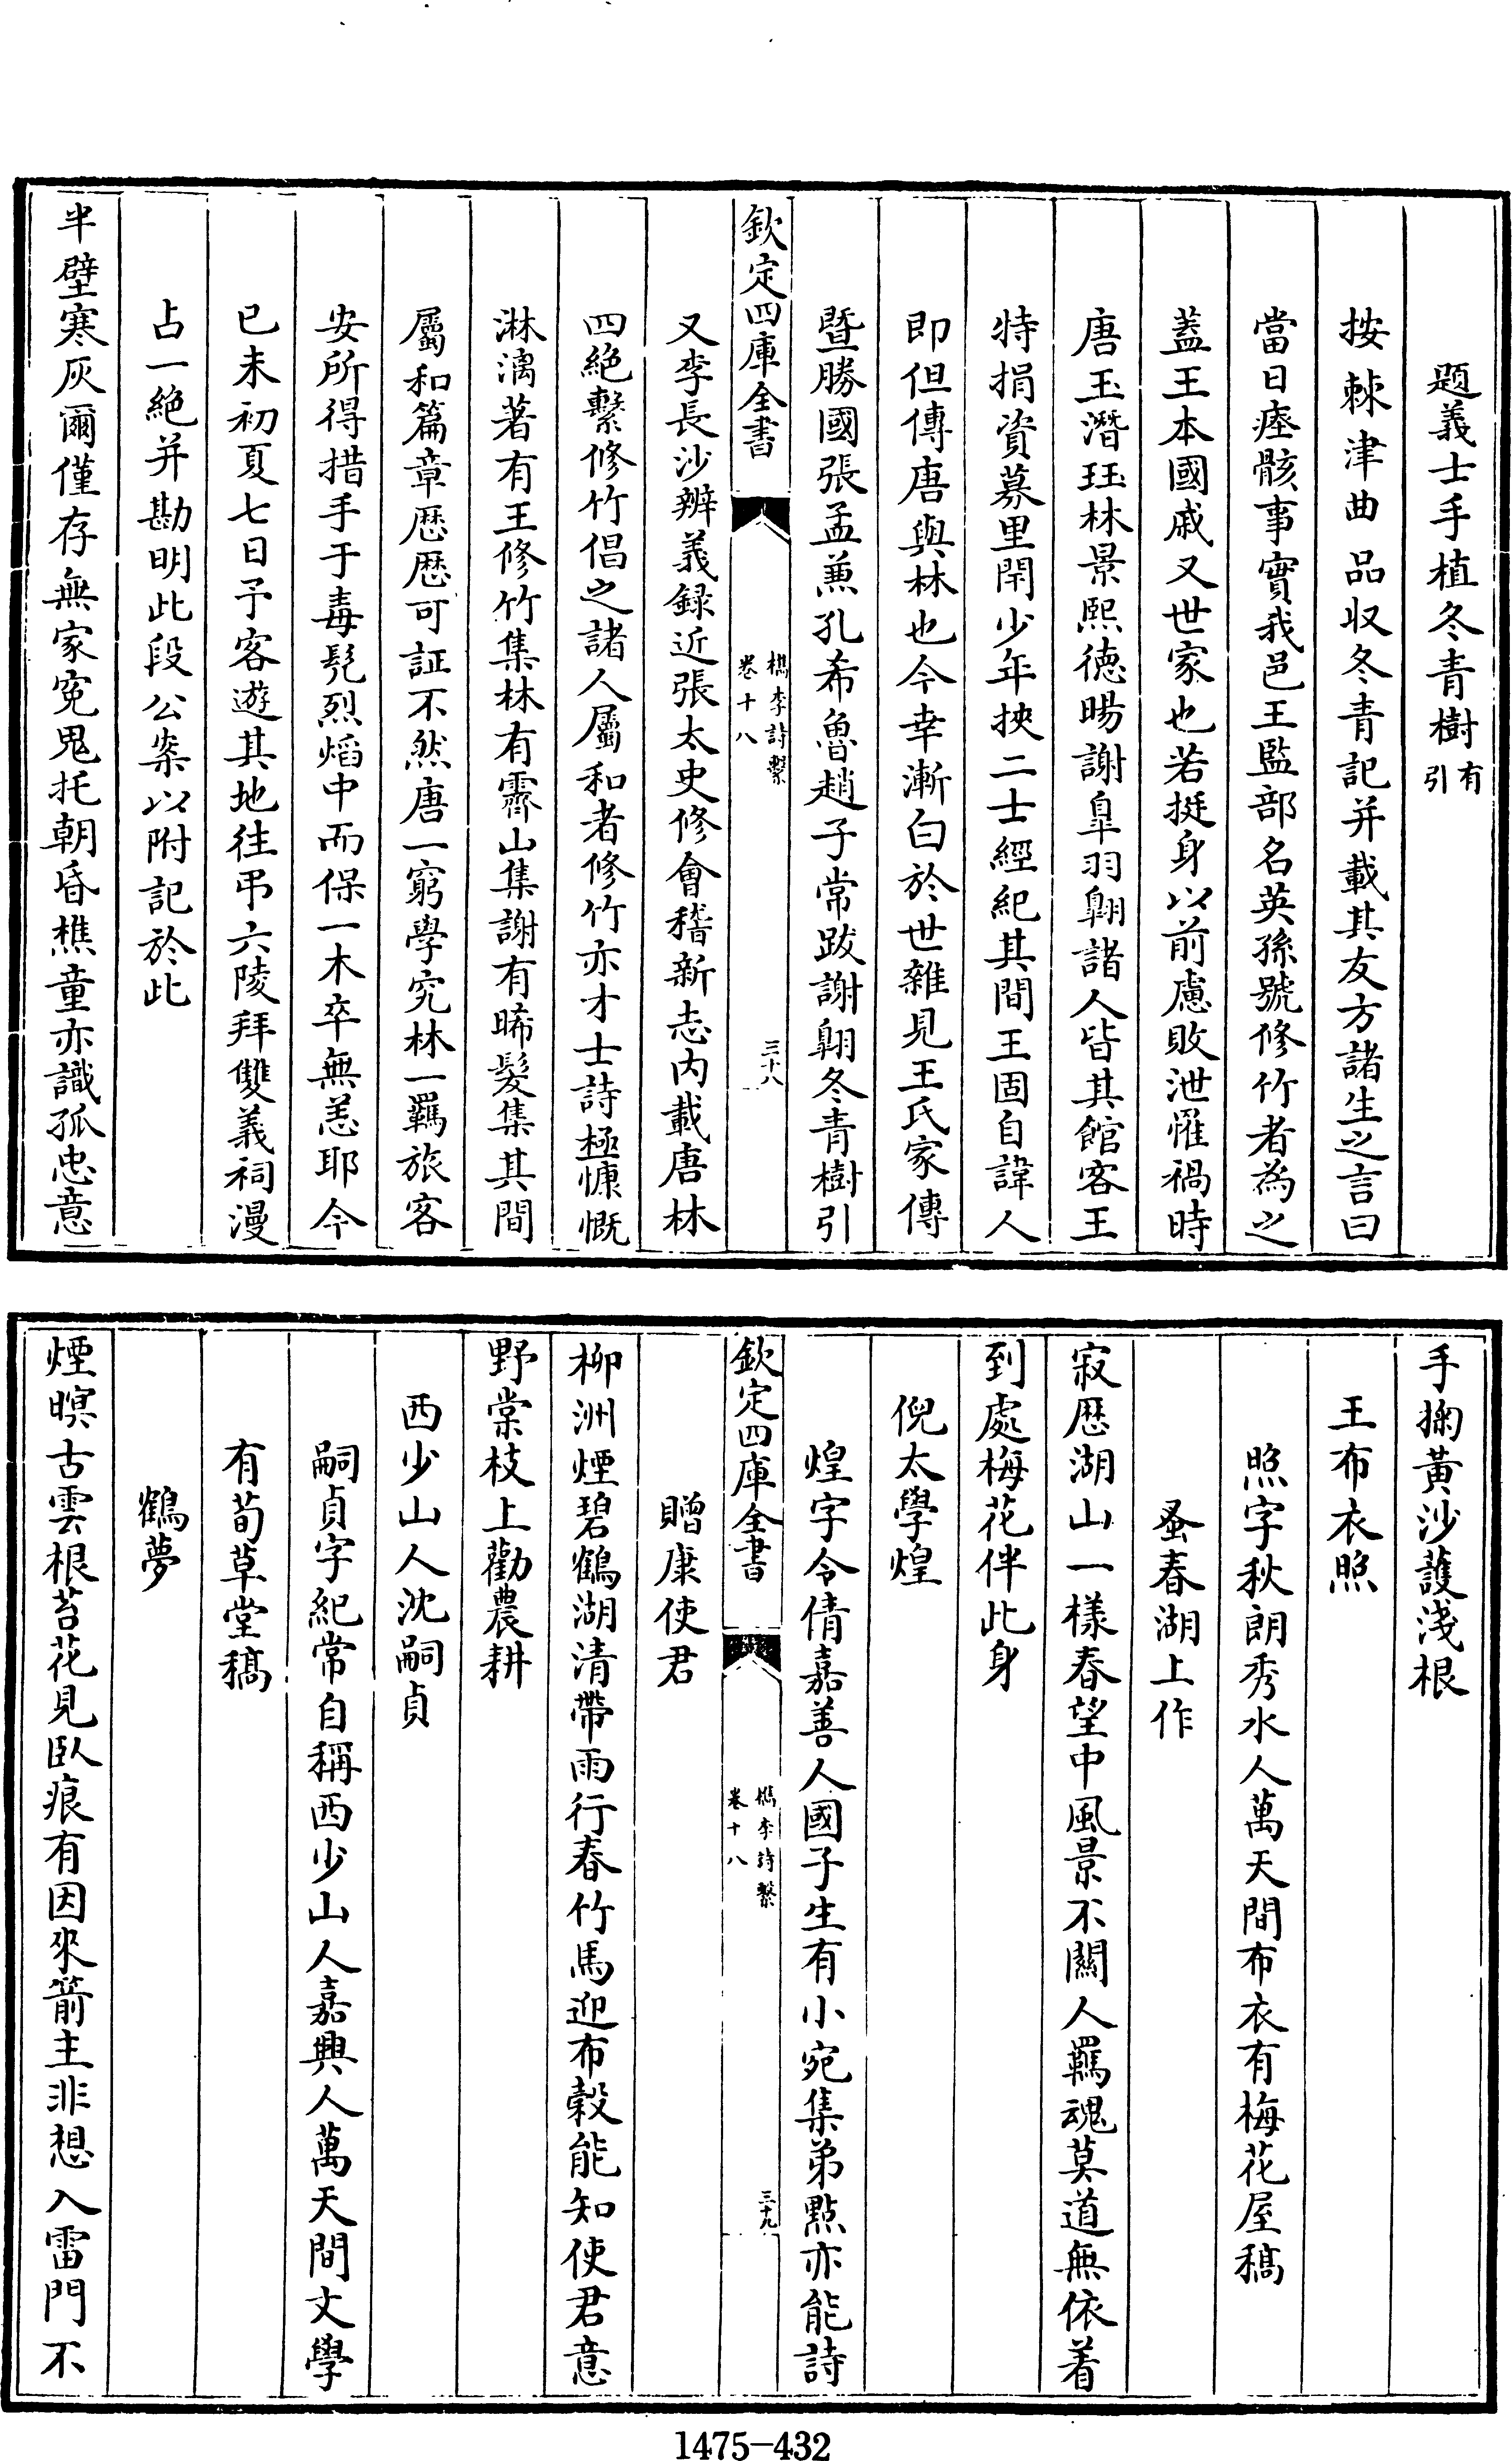 題義士手植冬青樹有引
按棘津曲品収冬青記并載其友方諸生之言曰
當日瘞骸事實我邑王監部名英孫號修竹者為之
蓋王本國戚又世家也若挺身以前慮敗泄罹禍時
唐玉潛珏林景熙徳暘謝臯羽翺諸人皆其館客王
特捐資募里閈少年挾二士經紀其間王固自諱人
即但傳唐與林也今幸漸白於世雜見王氏家傳
暨勝國張孟兼孔希魯趙子常跋謝翺冬青樹引
欽定四庫全書
檇李詩繫
卷十八
三十八
又李長沙辨義録近張太史修會稽新志内載唐林
四絶繫修竹倡之諸人屬和者修竹亦才士詩極慷慨
淋漓著有王修竹集林有霽山集謝有晞髪集其間
屬和篇章厯厯可証不然唐一窮學究林一羈旅客
安所得措手于毒髠烈熖中而保一木卒無恙耶今
已未初夏七日予客遊其地往弔六陵拜雙義祠漫
占一絶并勘明此段公案以附記於此
半壁寒灰爾僅存無家寃鬼托朝昏樵童亦識孤忠意
手掬黃沙護淺根
王布衣照
照字秋朗秀水人萬天間布衣有梅花屋稿
蚤春湖上作
寂厯湖山一樣春望中風景不關人羈魂莫道無依着
到處梅花伴此身
倪太學煌
煌字令倩嘉善人國子生有小宛集弟點亦能詩
欽定四庫全書
檇李詩繫
卷十八
三十九
贈康使君
柳洲煙碧鶴湖清帶雨行春竹馬迎布穀能知使君意
野棠枝上勸農耕
西少山人沈嗣貞
嗣貞字紀常自稱西少山人嘉興人萬天間文學
有荀草堂稿
鶴夢
煙暝古雲根苔花見臥痕有因來箭主非想入雷門不
1475-432